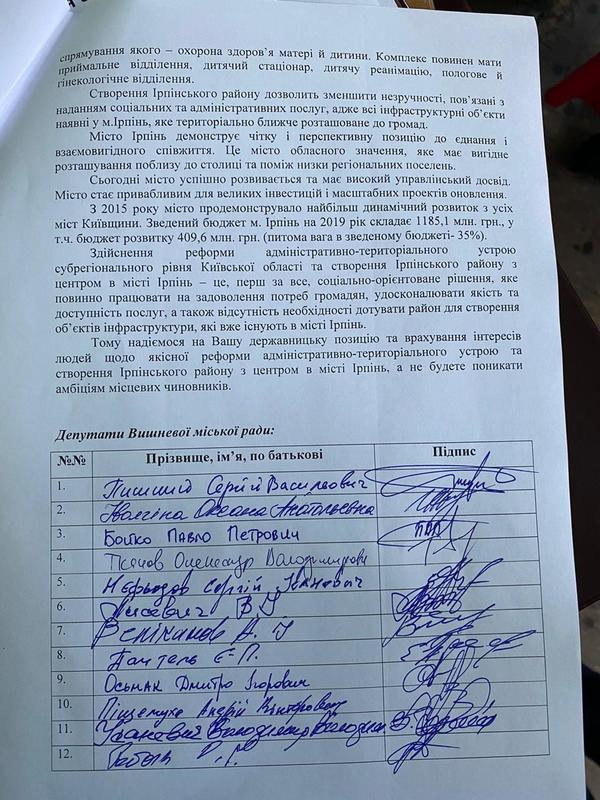 спрямування якого – охорона здоров'я матері й дитини. Комплекс повинен мати
приймальне відділення, дитячий стаціонар, дитячу реанімацію, пологове й
гінекологічне відділення.
Створення Ірпінського району дозволить зменшити незручності, пов'язані з
наданням соціальних та адміністративних послуг, адже всі інфраструктурні об'єкти
наявні у м.Ірпінь, яке територіально ближче розташоване до громад.
Місто Ірпінь демонструє чітку і перспективну позицію до єднання і
взаємовигідного співжиття. Це місто обласного значення, яке має вигідне
розташування поблизу до столиці та поміж низки регіональних поселень.
Сьогодні місто успішно розвивається та має високий управлінський досвід.
Місто стає привабливим для великих інвестицій і масштабних проектів оновлення.
З 2015 року місто продемонструвало найбільш динамічний розвиток з усіх
міст Київщини. Зведений бюджет м. Ірпінь на 2019 рік складає 1185,1 млн. грн., у
т.ч. бюджет розвитку 409,6 млн. грн. (питома вага в зведеному бюджеті- 35%).
Здійснення реформи адміністративно-територіального устрою
субрегіонального рівня Київської області та створення Ірпінського району з
центром в місті Ірпінь – це, перш за все, соціально-орієнтоване рішення, яке
повинно працювати на задоволення потреб громадян, удосконалювати якість та
доступність послуг, а також відсутність необхідності дотувати район для створення
об'єктів інфраструктури, які вже існують в місті Ірпінь.
Тому надіємося на Вашу державницьку позицію та врахування інтересів
людей щодо якісної реформи адміністративно-територіального устрою та
створення Ірпінського району з центром в місті Ірпінь, а не будете поникати
амбіціям місцевих чиновників.
Депутати Вишневої міської ради:
№№ Прізвище, ім'я, по батькові Підпис
1. Сергій Васильович
2. Оксана Анатольевна
3. Бойко Павло Петрович
4. Олександр Володимирович
5. Сергій Іванович
6.
7.
8. Є.П.
9. Осьмак Дмитро Ігорович
10. Андрій Вікторович
11. Володимир
12.